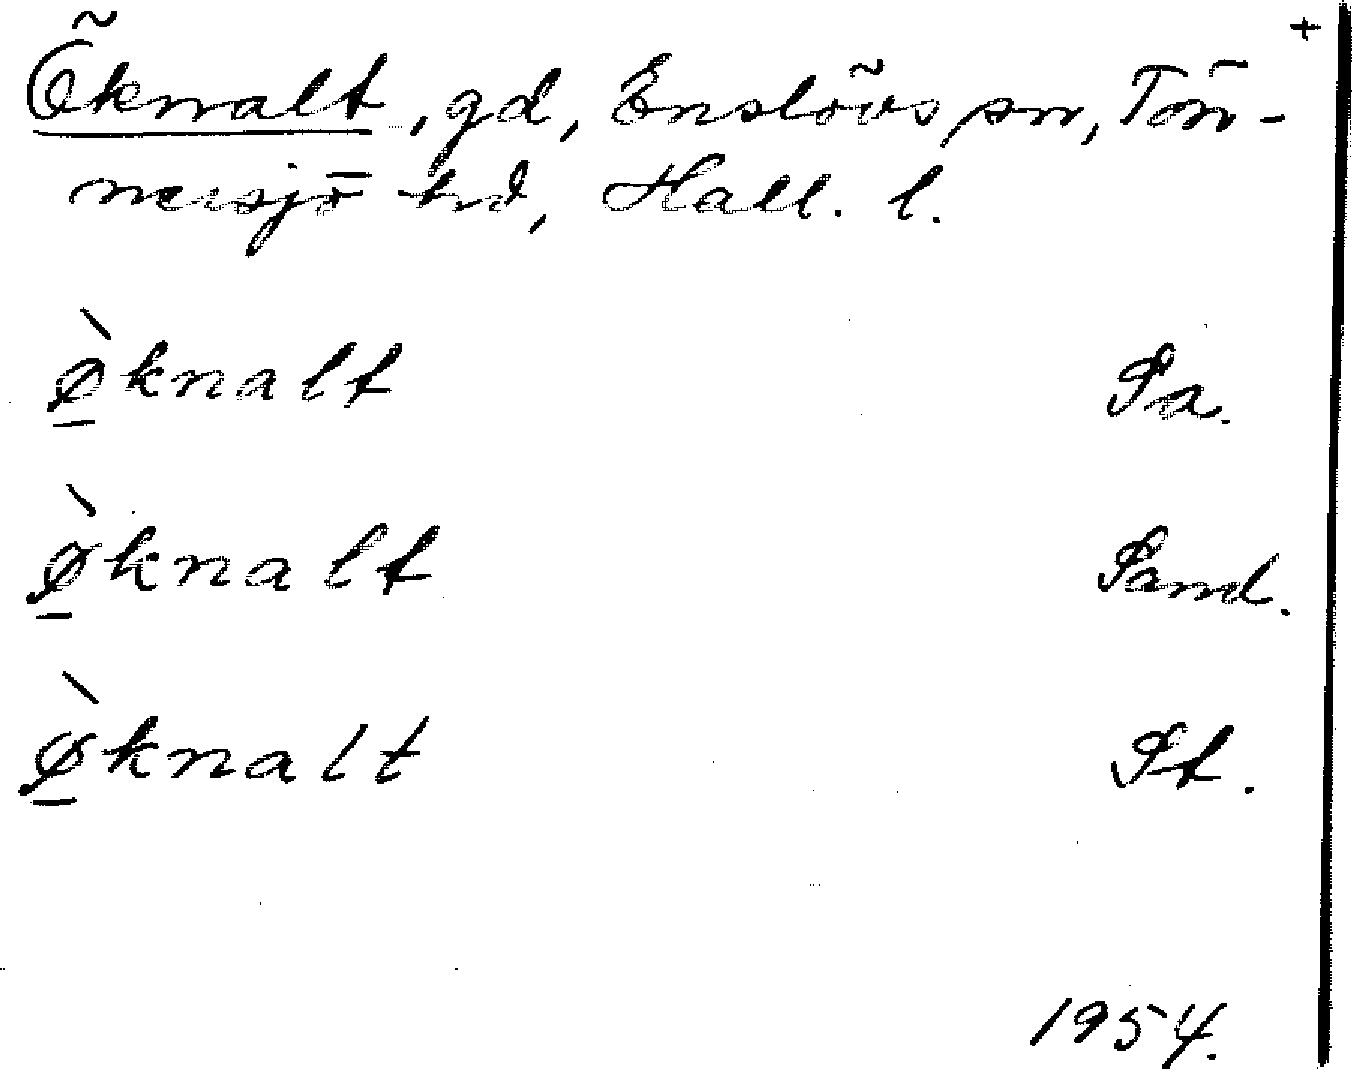 +
Öknalt, gd, Enslövs sn, Tön-
nersjö hd, Hall. l.
ø̲̀knalt Pa.
ø̲̀knalt Pand.
ø̲̀knalt Pt.
1954.